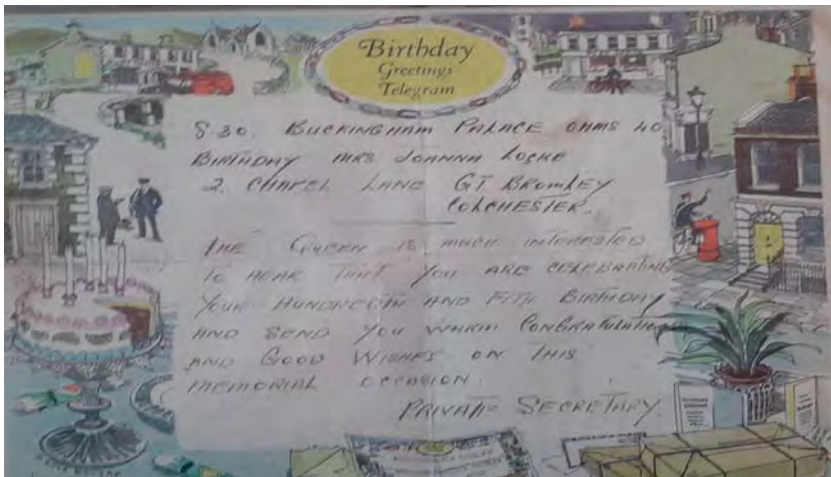 Birthday
Greetings
Telegram
8.30. BUCKINGHAM PALACE OHMS 40
BIRTHDAY MRS JOANNA LOCKE
2. CHAPEL LANE GT. BROMLEY
COLCHESTER.
THE QUEEN IS MUCH INTERESTED
TO HEAR THAT YOU ARE CELEBRATING
YOUR HUNDREDTH AND FITH BIRTHDAY
AND SEND YOU WARM CONGRATULATIONS
AND GOOD WISHES ON THIS
MEMORIAL OCCASION.
PRIVATE SECRETARY.